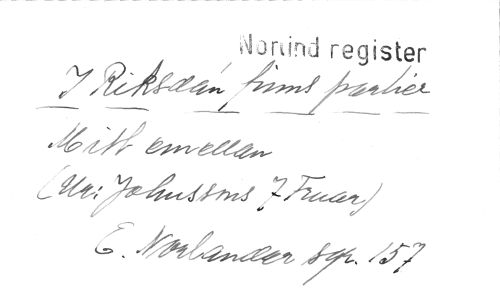 Norlind register
I Riksdan finns partier
Mitt emellan
(Ur: Johnssons 7 Fruar)
E. Norlander sgr. 157